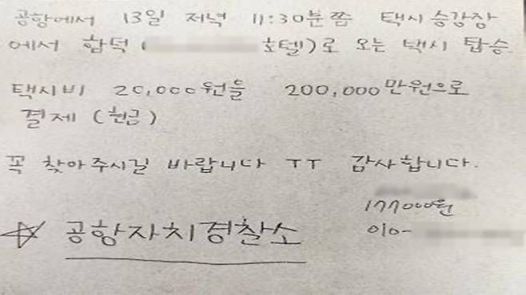 공항에서 13일 저녁 11:30분쯤 택시승강장
에서 함덕 ( 호텔)로 오는 택시 탑승
택시비 20,000원을 200,000만원으로
결제 (현금)
꼭 찾아주시길 바랍니다 ㅜㅜ 감사합니다.
177000원
☆ 공항자치경찰소 010-